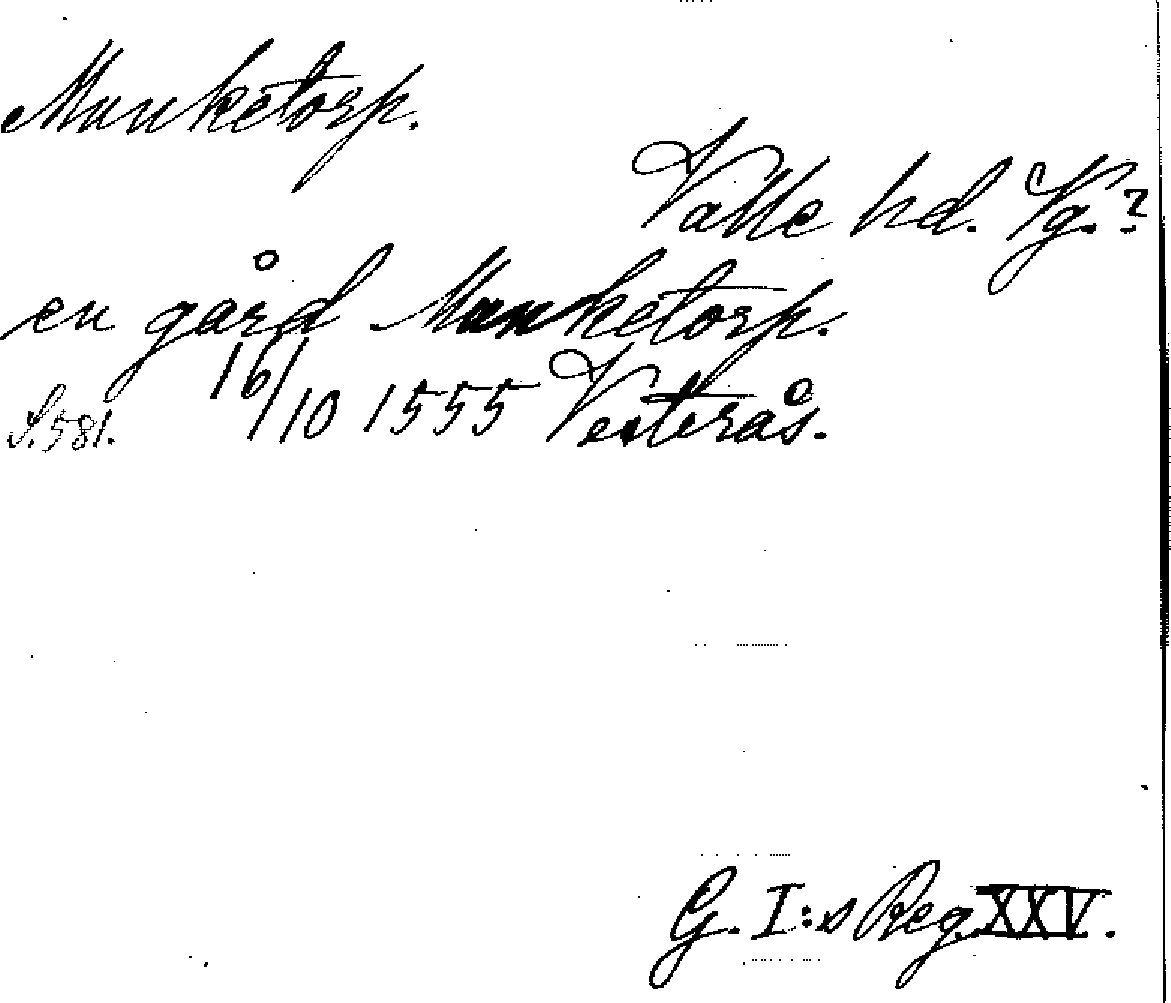 Munketorp.
Valle hd. Vg.?
en gård Munketorp.
16/10 1555 Vesterås.
S. 581.
G. I:s Reg. XXV.